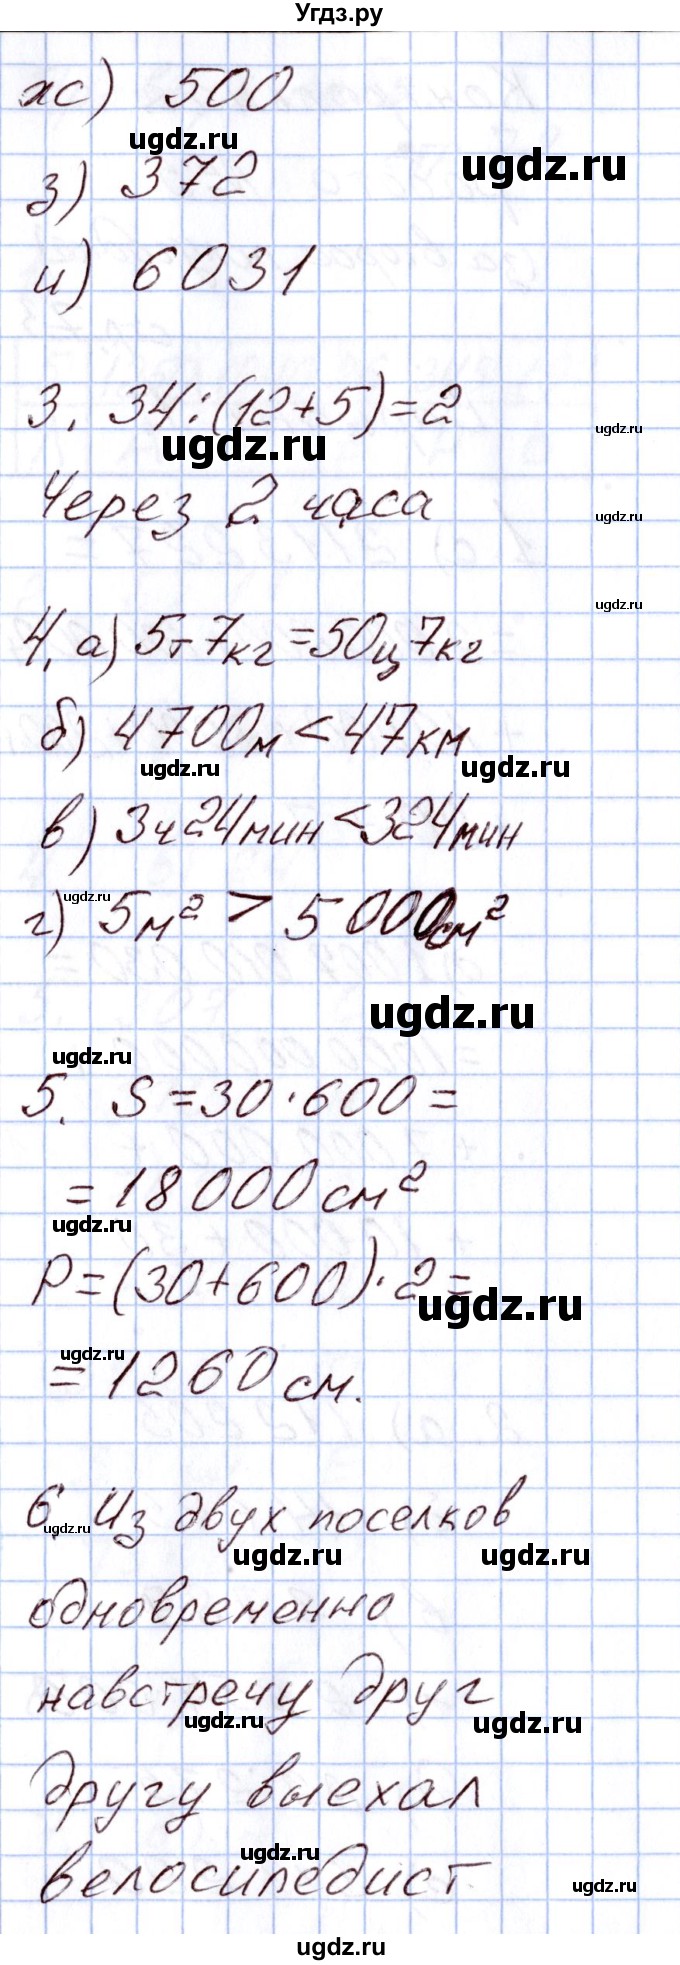 Угдз.ру
ж) 500
ugdz.ru
ugdz.ru
з) 372
и) 6031
3. 34:(12+5)=2
ugdz.ru
ugdz.ru
Через 2 часа
ugdz.ru
ugdz.ru
4. а) 5т7кг=50ц7кг
б) 4700м<47км
ugdz.ru
ugdz.ru
в) 3ч24мин<324мин
ugdz.ru
г) 5м² > 5000см²
ugdz.ru
ugdz.ru
5. S=30·600=
=18000см²
ugdz.ru
P=(30+600)·2=
ugdz.ru
ugdz.ru
=1260см.
6. Из двух поселков
ugdz.ru
ugdz.ru
ugdz.ru
одновременно
навстречу друг
ugdz.ru
ugdz.ru
другу выехал
ugdz.ru
велосипедист
ugdz.ru
ugdz.ru